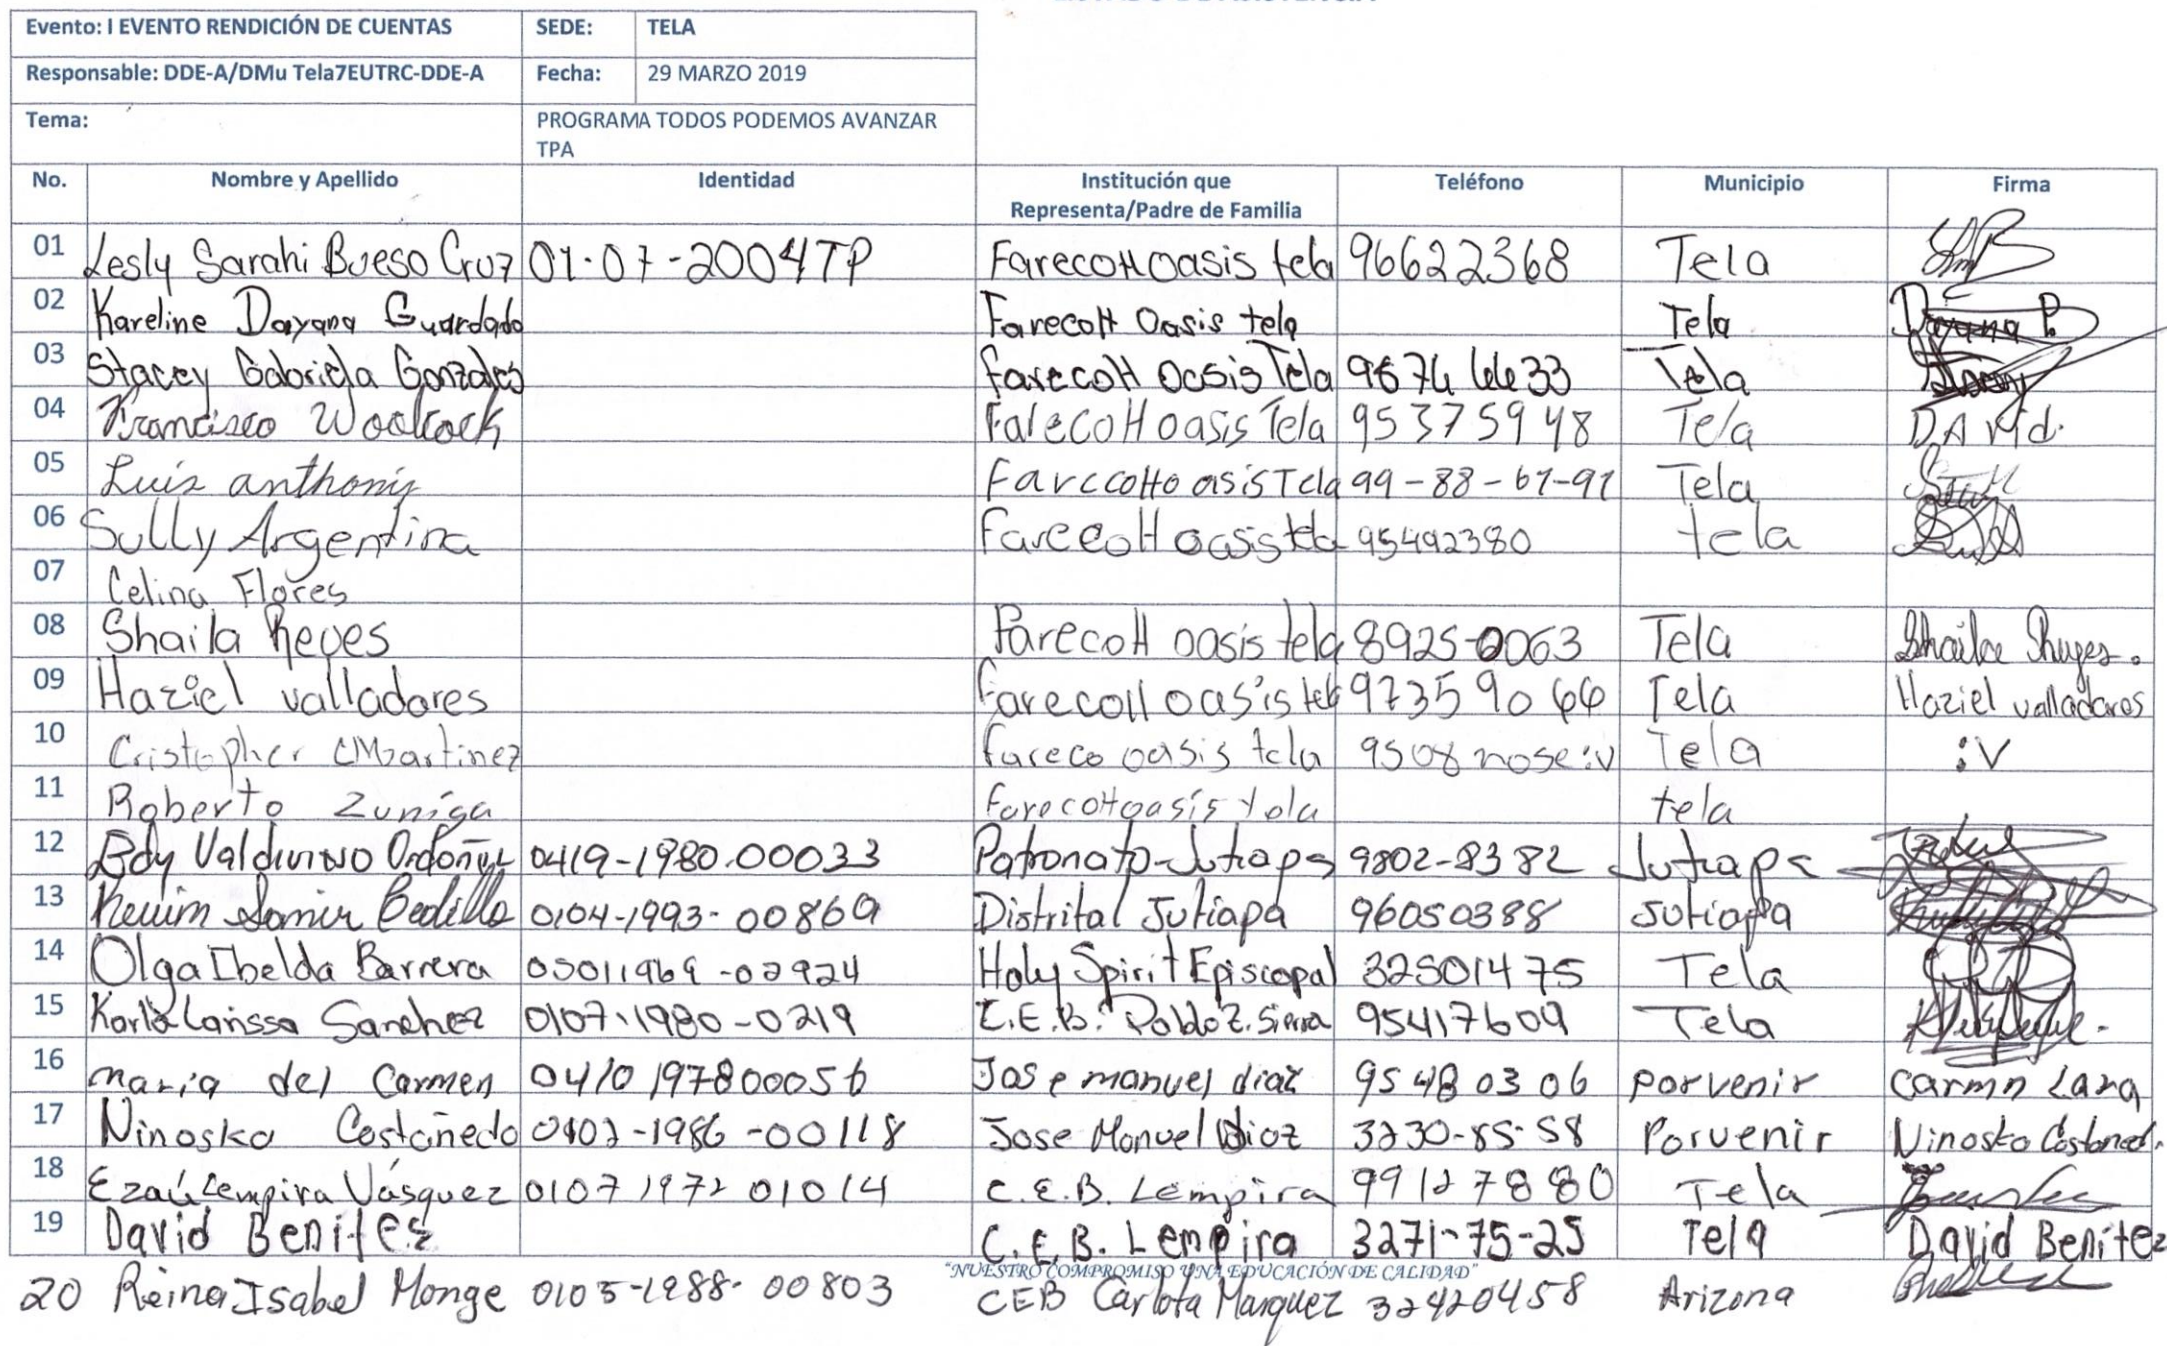 Evento: I EVENTO RENDICIÓN DE CUENTAS SEDE: TELA
Responsable: DDE-A/DMu Tela7EUTRC-DDE-A Fecha: 29 MARZO 2019
Tema: PROGRAMA TODOS PODEMOS AVANZAR
TPA
No. Nombre y Apellido Identidad Institución que Teléfono Municipio Firma
Representa/Padre de Familia
01 Lesly Sarahi Bueso Cruz 01-07-2004TP FarecoH oasis tela 96622368 Tela
02 Kareline Dayana Guardado FarecoH Oasis tela Tela Dayana P.
03 Stacey Gabriela Gonzales farecoH oasis Tela Tela
04 Francisco Woolcock FarecoH oasis Tela 95375948 Tela DAvid.
05 Luis anthony FarecoHo asis Tela 99-88-61-91 Tela
06 Sully Argentina FarecoH oasis tela 95492380 tela
07 Celina Flores
08 Shaila Reyes FarecoH oasis tela 8925-0063 Tela Shaila Reyes.
09 Haziel valladares farecoH oasis tela 97359066 Tela Haziel valladares
10 Cristopher Martinez fareco oasis tela 9508 nose:v Tela :V
11 Roberto Zuniga farecoHoasis tela tela
12 Edy Valdivino Ordoñez 0419-1980.00033 Patronato-Jutiapa 9802-8382 Jutiapa
13 Samir 0104-1993-00869 Distrital Jutiapa 96050388 Jutiapa
14 Olga Ibelda Barrera 05011969-02924 Holy Spirit Episcopal 32501475 Tela
15 Karla Larissa Sanchez 0107-1980-0219 C.E.B. Pablo Z. Sierra 95417609 Tela
16 maria del Carmen 0410197800056 Jose manuel diaz 95480306 porvenir carmn Lara
17 Ninoska Castañedo 0102-1986-00118 Jose Manuel Diaz 3230-85-58 Porvenir Ninoska Castaned.
18 Ezaú Lempira Vásquez 0107 1972 01014 C.E.B. Lempira 99127880 Tela
19 David Benitez C.E.B. Lempira 3271-75-25 Tela David Benitez
"NUESTRO COMPROMISO UNA EDUCACIÓN DE CALIDAD"
20 Reina Isabel Monge 0105-1988-00803 CEB Carlota Marquez 32420458 Arizona